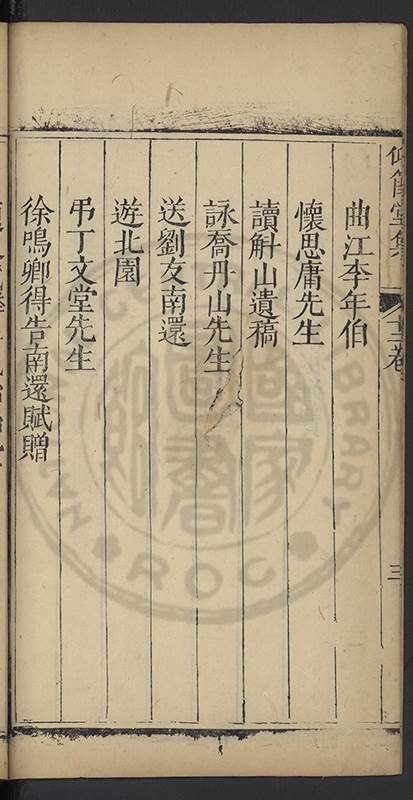 仰節堂集
十二卷
三
曲江李年伯
懷思庸先生
讀斛山遺稿
詠喬丹山先生
送劉友南還
遊北園
弔丁文堂先生
徐鳴卿得告南還賦贈